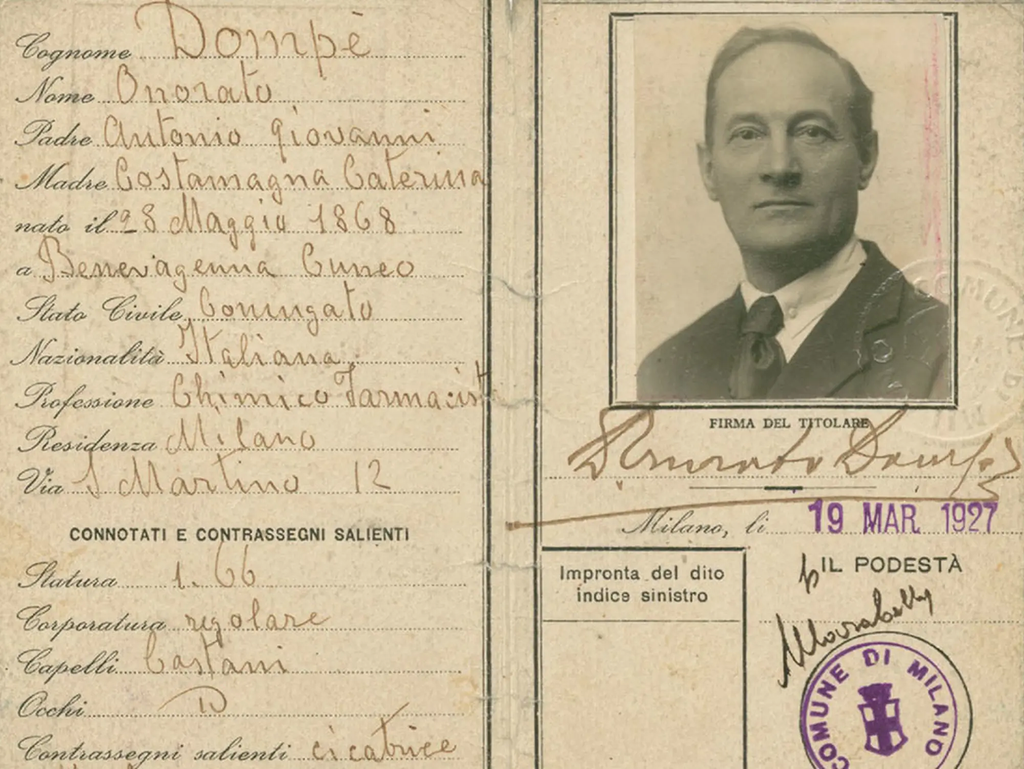 Cognome Dompè
Nome Onorato
Padre Antonio Giovanni
Madre Costamagna Caterina
nato il 28 Maggio 1868
a Benevagenna Cuneo
Stato Civile Coniugato
Nazionalità Italiana
Professione Chimico Farmacista
Residenza Milano
Via S Martino 12
CONNOTATI E CONTRASSEGNI SALIENTI
Statura 1.66
Corporatura regolare
Capelli Castani
Occhi
Contrassegni salienti cicatrice
COMUNE DI
FIRMA DEL TITOLARE
Onorato Dompè
Milano, li 19 MAR. 1927
Impronta del dito
indice sinistro
p IL PODESTÀ
COMUNE DI MILANO